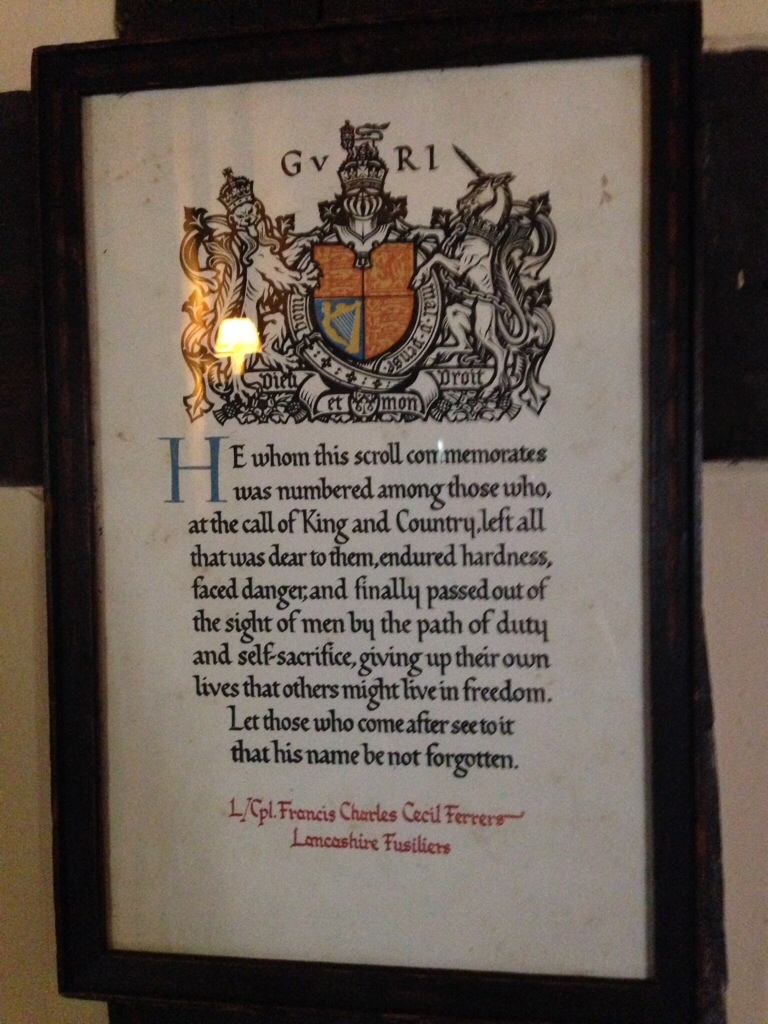 GV RI
hony mal·y·pense
Dieu Droit
et mon
HE whom this scroll commemorates
was numbered among those who,
at the call of King and Country, left all
that was dear to them, endured hardness,
faced danger, and finally passed out of
the sight of men by the path of duty
and self-sacrifice, giving up their own
lives that others might live in freedom.
Let those who come after see to it
that his name be not forgotten.
L/Cpl. Francis Charles Cecil Ferrers
Lancashire Fusiliers